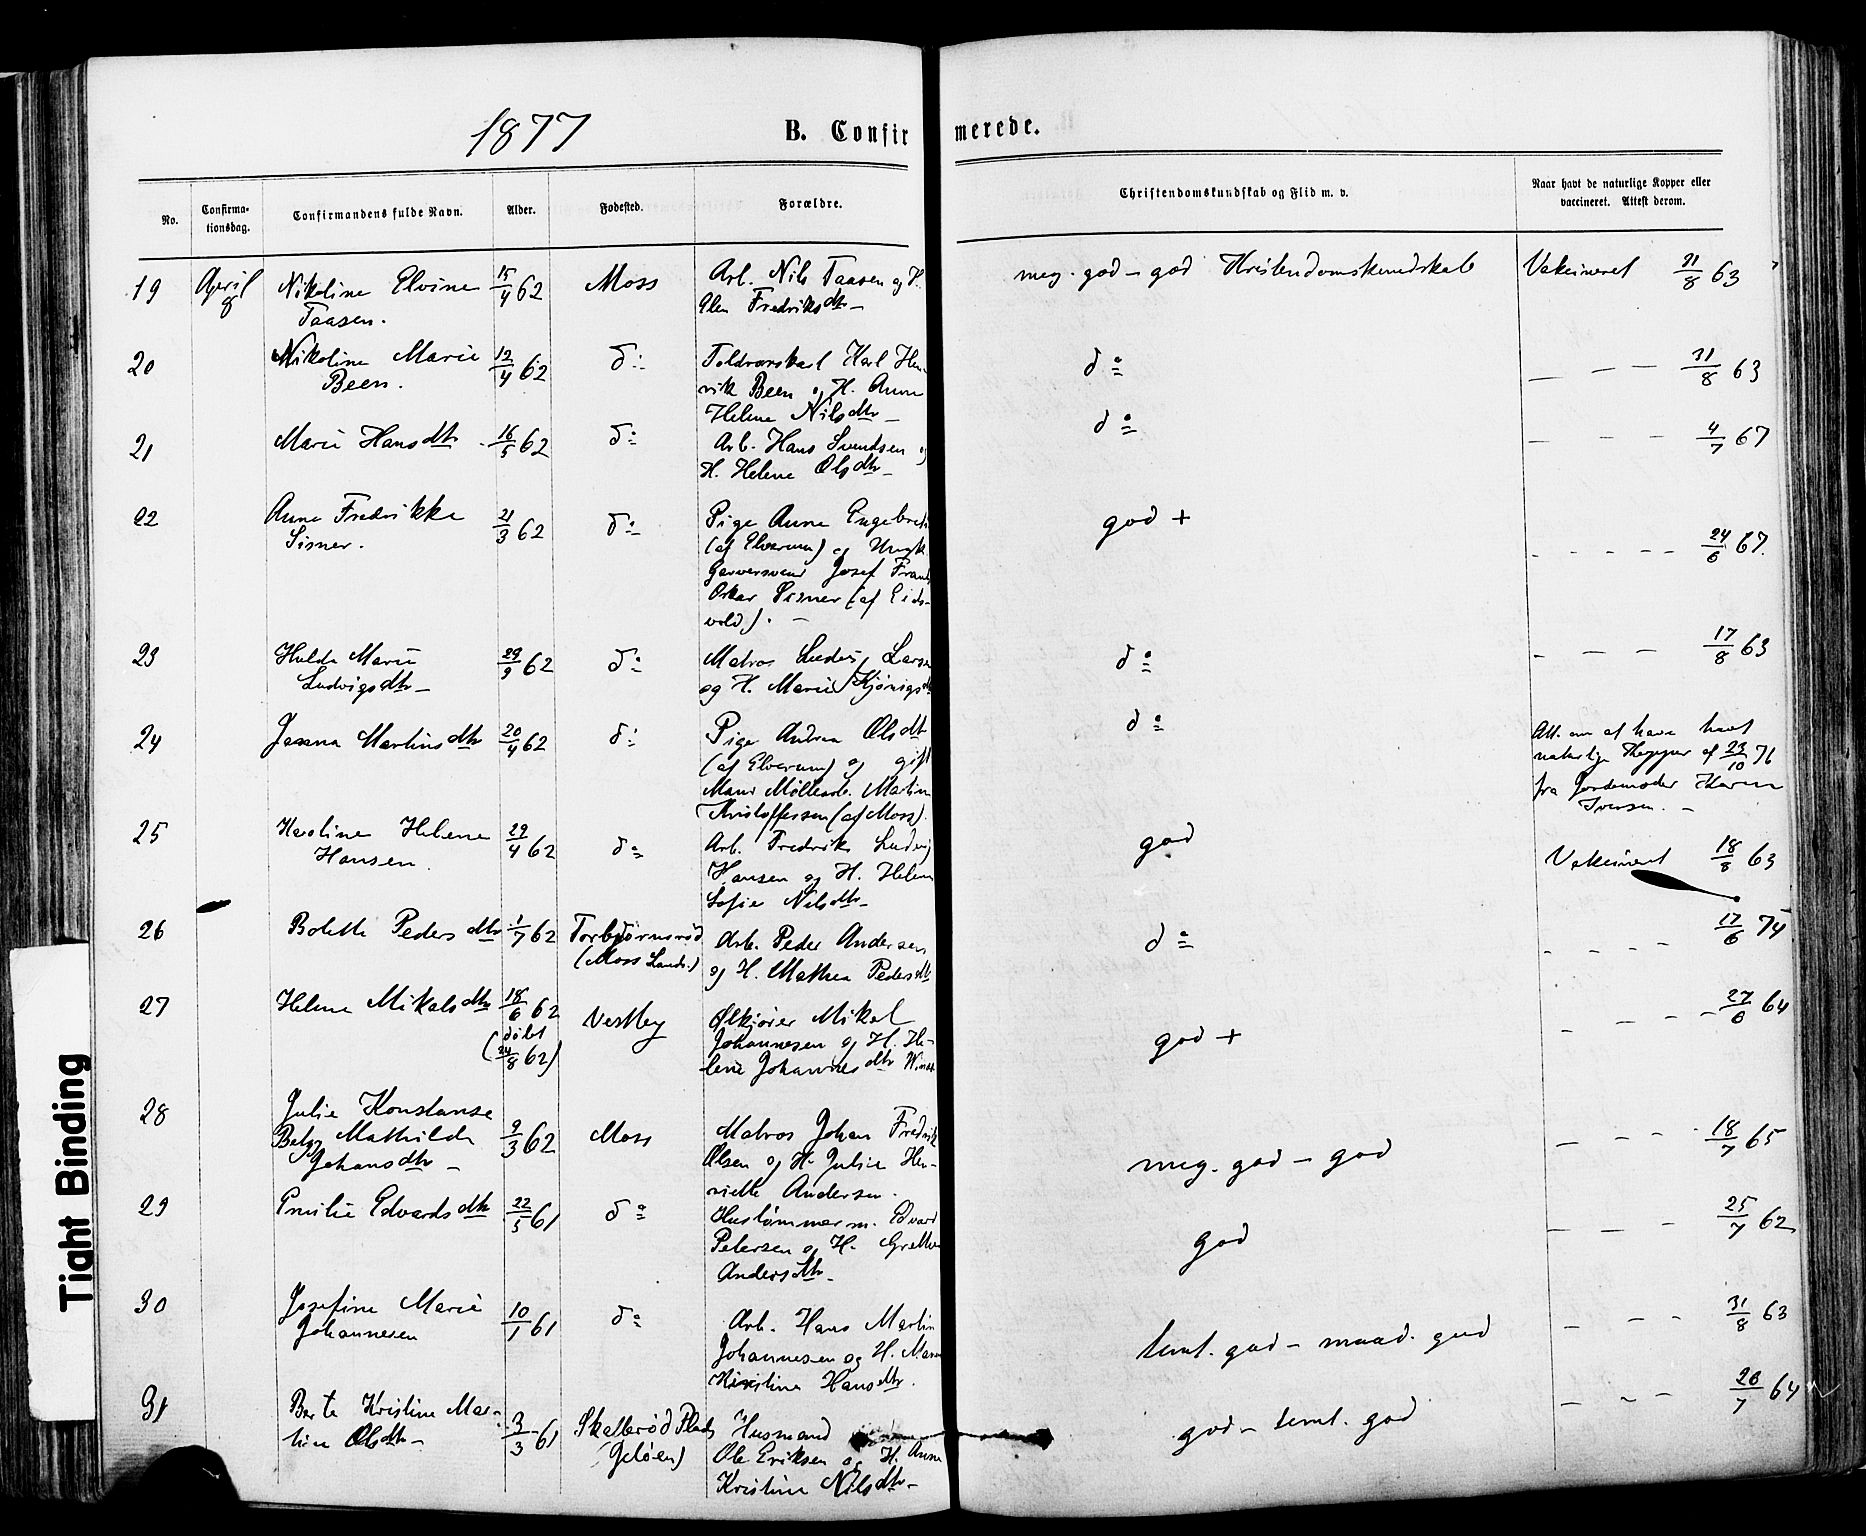 1877
B. Confirmerede.
No.
Confirma-
tionsdag.
Confirmandens fulde Navn.
Alder.
Fødested.
Forældre.
Christendomskundskab og Flid m. v.
Naar havt de naturlige Kopper eller
vaccineret. Attest derom.
19 April 8 Nikoline Elvine 15/4 62 Moss Arb. Nils Taasen og H. meg. god - god Kristendomskundskab Vakcineret 31/8 63
Taasen. Elen Fredriksdtr -
20 Nikoline Marie 12/4 62 do Toldvorskarl Karl Hen- do — — — 31/8 63
Been. rik Been og H. Anne
Helene Nilsdtr -
21 Marie Hansdtr 16/5 62 do Arb. Hans Svendsen og do — — — 4/7 67
H. Helene Olsdtr -
22 Anne Fredrikke 21/3 62 do Pige Anne Engebrets god + - - - - - 24/6 67.
Sisner. (af Elverum) og Ungk.
Garversvend Josef Frants
Oskar Sisner (af Eids-
vold). -
23 Hulda Marie 29/9 62 do Matros Ludvig Larsen do - - - - 17/8 63
Ludvigsdtr - og H. Marie
24 Martinsdtr 20/4 62 do Pige Andrea Olsdtr do Att. om at have havt
(af Elverum) og gift naturlige af 23/10 76
Mand Møllearb. Martin fra Jordemoder Karen
Kristoffersen (af Moss). Iversen. -
25 Karoline Helene 29/4 62 do Arb. Fredrik Ludvig god Vakcineret 18/8 63
Hansen. Hansen og H. Helene
Sofie Nilsdtr -
26 Bolette Pedersdtr 1/7 62 Torbjørnsrød Arb. Peder Andersen do - - - - 17/6 74
(Moss Lands.) og H. Mathea Pedersdtr
27 Helene Mikalsdtr 18/6 62 Vestby Ølkjører Mikal god + - - - - 27/6 64
(døbt Johannesen og H. He-
24/8 62) lene Johannesdtr
28 Julie Konstanse
Betzy Mathilde 9/3 62 Moss Matros Johan Fredrik meg. god - god — - - 18/7 65
Johansdtr - Olsen og H. Julie Hen-
riette Andersen.
29 Emilie Edvardsdtr 22/5 61 do Hustømmerm. Edvard god — — - 25/7 62
Petersen og H. Grethe
Andersdtr -
30 Josefine Marie 10/1 61 do Arb. Hans Martin teml. god - maad. god — - - 31/8 63
Johannesen Johannesen og H. Maren
Kristine Hansdtr.
31 Berte Kristine Mar- 3/3 61 Skallerød Plads Husmand god - teml. god — - - 20/7 64
tine Olsdtr - (Geløen) Ole Eriksen og H. Anne
Kristine Nilsdtr -
Tight Binding